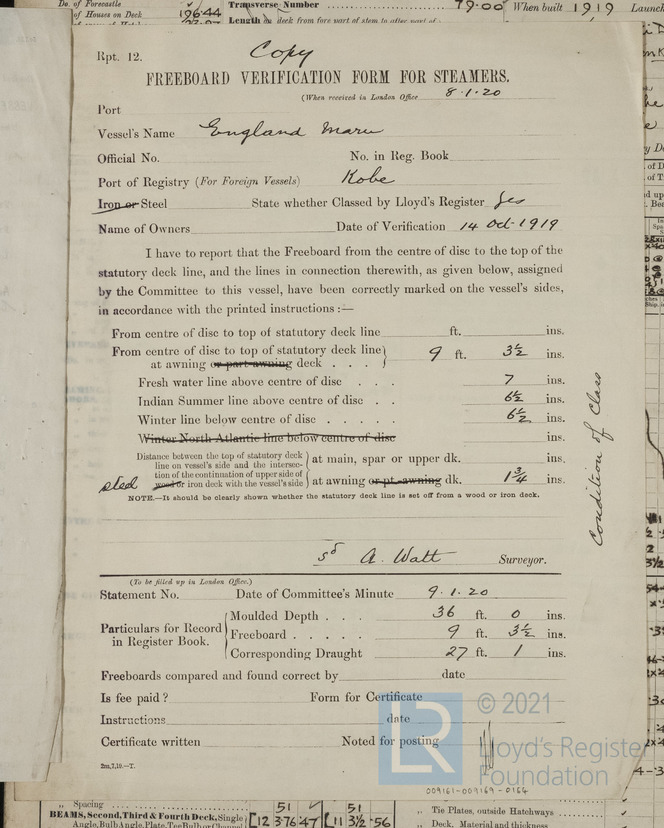 No. of Forecastle
of Houses on Deck 196.44
Transverse Number 79.00 When built 1919 Launch
Length on deck from fore part of stem to after part of
Rpt. 12. Copy
FREEBOARD VERIFICATION FORM FOR STEAMERS.
(When received in London Office 8.1.20
Port
Vessel's Name England Maru
Official No. No. in Reg. Book
Port of Registry (For Foreign Vessels) Kobe
Iron or Steel State whether Classed by Lloyd's Register yes
Name of Owners Date of Verification 14 Oct. 1919
I have to report that the Freeboard from the centre of disc to the top of the
statutory deck line, and the lines in connection therewith, as given below, assigned
by the Committee to this vessel, have been correctly marked on the vessel's sides,
in accordance with the printed instructions :—
From centre of disc to top of statutory deck line ft. ins.
From centre of disc to top of statutory deck line
at awning or part-awning deck . . . 9 ft. 3½ ins.
Fresh water line above centre of disc . . . 7 ins.
Indian Summer line above centre of disc . . 6½ ins.
Winter line below centre of disc . . . . 6½ ins.
Winter North Atlantic line below centre of disc ins.
Distance between the top of statutory deck
line on vessel's side and the intersec-
tion of the continuation of upper side of
steel wood or iron deck with the vessel's side
at main, spar or upper dk. ins.
at awning or pt.-awning dk. 1¾ ins.
NOTE.—It should be clearly shown whether the statutory deck line is set off from a wood or iron deck.
Condition of Class
sd A. Watt Surveyor.
(To be filled up in London Office.)
Statement No. Date of Committee's Minute 9.1.20
Particulars for Record
in Register Book.
Moulded Depth . . . 36 ft. 0 ins.
Freeboard . . . . . 9 ft. 3½ ins.
Corresponding Draught 27 ft. 1 ins.
Freeboards compared and found correct by date
Is fee paid ? Form for Certificate
Instructions date
Certificate written Noted for posting
2m,7,19.—T.
LR © 2021
Lloyd's Register
Foundation
009161-009169-0164
„ Spacing 51 51
BEAMS, Second, Third & Fourth Deck, Single
Angle, Bulb Angle, Plate, Tee Bulb or Channel
12 3.76 .47 11 3½ .56
„ Tie Plates, outside Hatchways
„ Deck. Material and thickness